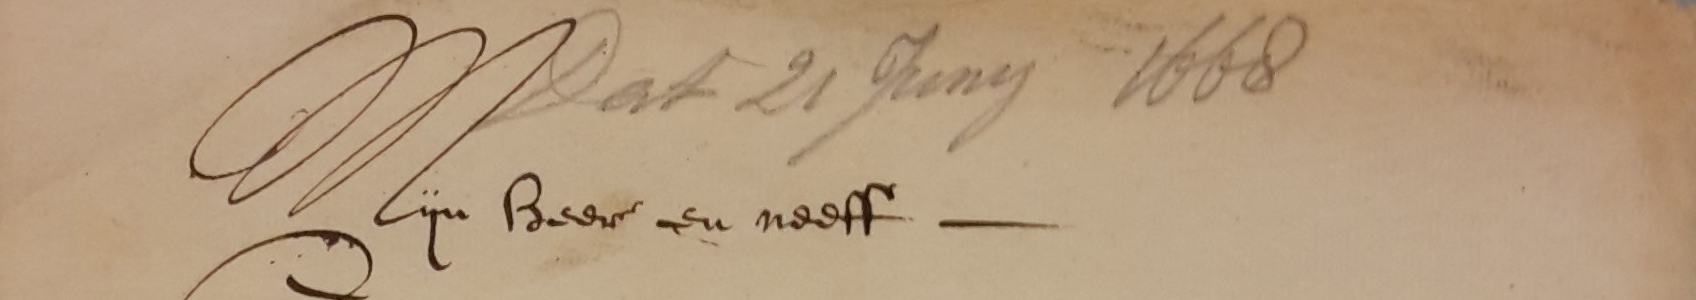 Dat 21 Juny 1668
Mijn Heer en neeff —